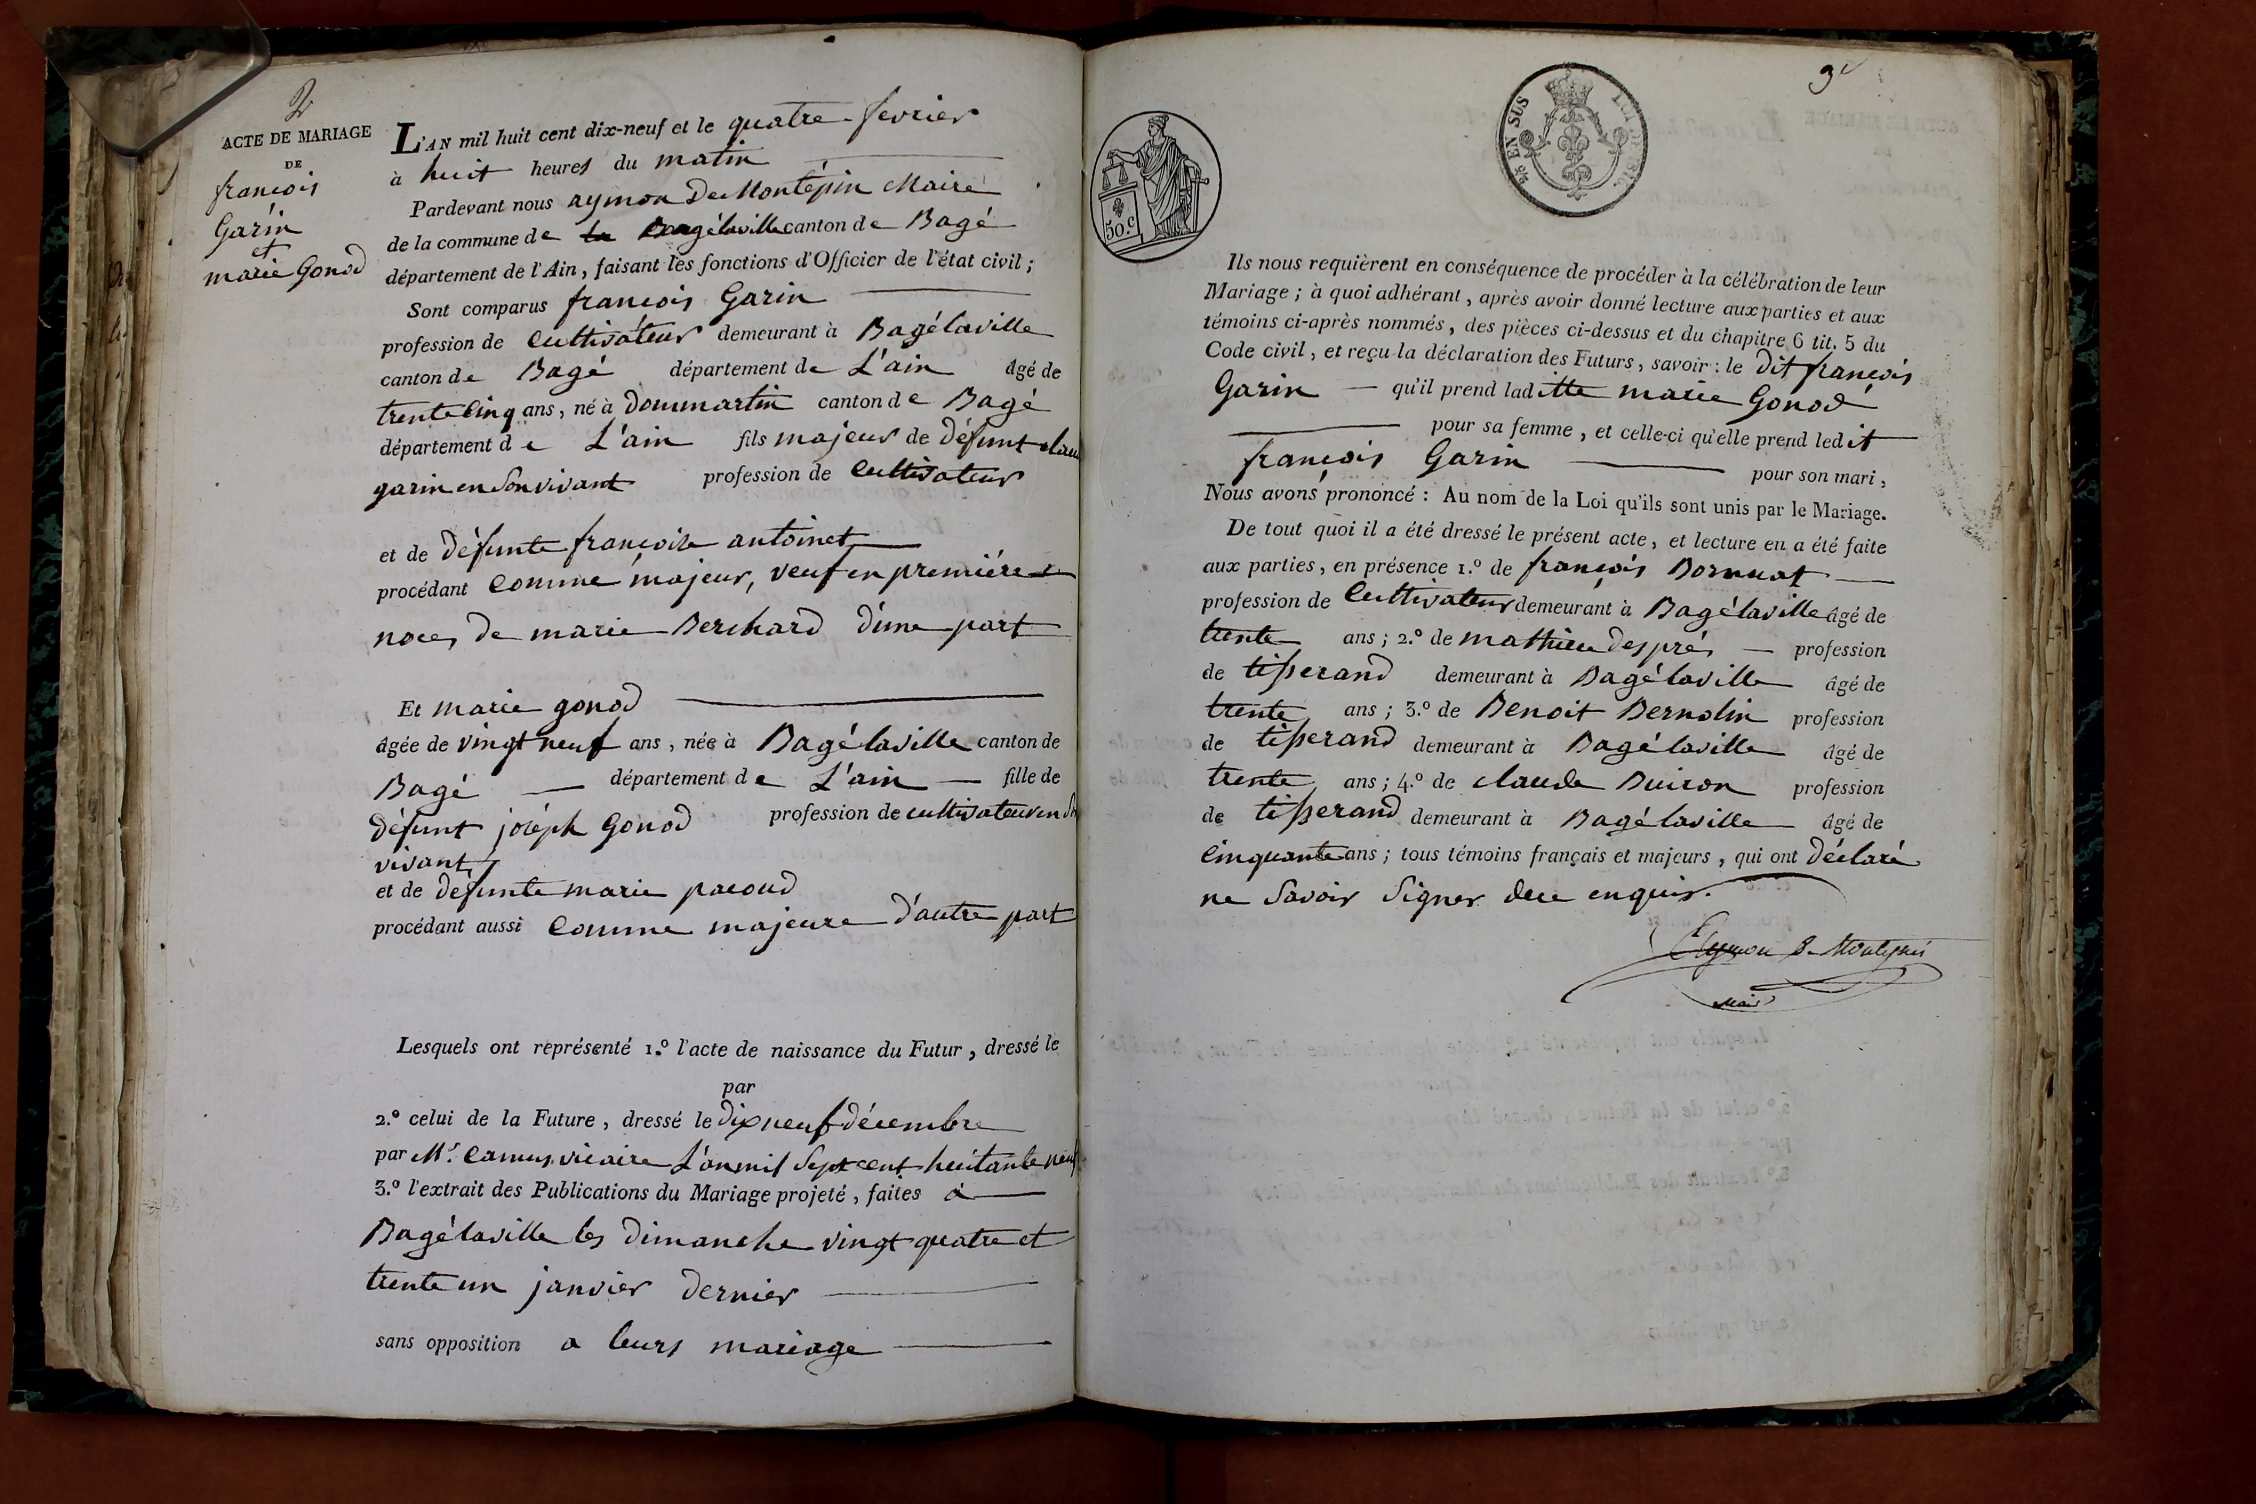 2
ACTE DE MARIAGE
DE
françois
Garin
et
marie Gonod
L'AN mil huit cent dix-neuf et le quatre fevrier
à huit heures du matin
Pardevant nous aymon De Montépin Maire
de la commune de la Bagélaville canton de Bagé
département de l'Ain, faisant les fonctions d'Officier de l'état civil ;
Sont comparus françois Garin
profession de Cultivateur demeurant à Bagélaville
canton de Bagé département de L'ain âgé de
trente Cinq ans, né à Dommartin canton de Bagé
département de L'ain fils majeur de défunt clau
garin en Son vivant profession de Cultivateur
et de défunte françoise antoinet
procédant Comme majeur, veuf en première
noces De marie Berchard D'une part
Et marie gonod
âgée de vingt neuf ans, née à Bagélaville canton de
Bagé département de L'ain fille de
défunt joséph Gonod profession de cultivateur en Son
vivant,
et de défunte marie pacoud
procédant aussi Comme majeure D'autre part
Lesquels ont représenté 1.º l'acte de naissance du Futur, dressé le
par
2.º celui de la Future, dressé le Dix neuf décembre
par Mr. Camus vicaire L'an mil Sept cent huitante neuf
3.º l'extrait des Publications du Mariage projeté, faites à
Bagélaville les Dimanche vingt quatre et
trente un janvier Dernier
sans opposition a leurs mariage
3
25 EN SUS
50.c
Ils nous requièrent en conséquence de procéder à la célébration de leur
Mariage ; à quoi adhérant, après avoir donné lecture aux parties et aux
témoins ci-après nommés, des pièces ci-dessus et du chapitre 6 tit. 5 du
Code civil, et reçu la déclaration des Futurs, savoir : le Dit françois
Garin qu'il prend laditte marie Gonod
pour sa femme, et celle-ci qu'elle prend ledit
françois Garin pour son mari,
Nous avons prononcé : Au nom de la Loi qu'ils sont unis par le Mariage.
De tout quoi il a été dressé le présent acte, et lecture en a été faite
aux parties, en présence 1.º de françois Bornuat
profession de Cultivateur demeurant à Bagélaville âgé de
trente ans ; 2.º de mathieu Després profession
de tisserand demeurant à Bagélaville âgé de
trente ans ; 3.º de Benoit Bernolin profession
de tisserand demeurant à Bagélaville âgé de
trente ans ; 4.º de claude Buiron profession
de tisserand demeurant à Bagélaville âgé de
Cinquante ans ; tous témoins français et majeurs, qui ont Déclaré
ne Savoir Signer de ce enquis.
Aymon De Montépin
Maire